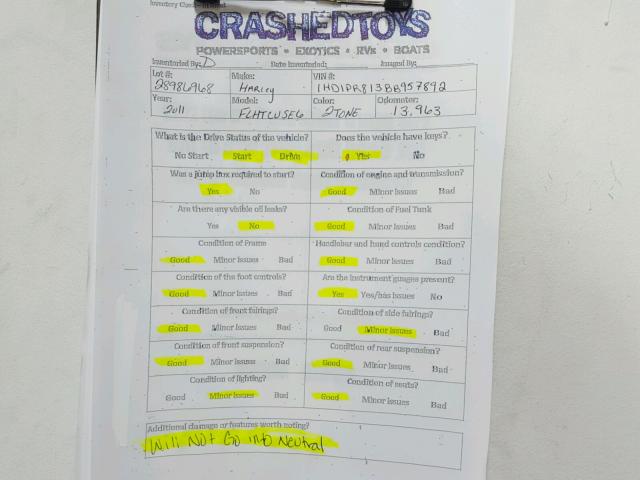 CRASHEDTOYS
POWERSPORTS • EXOTICS • RVs • BOATS
Inventoried By: D Date Inventoried: Imaged By:
Lot #: Make: VIN #:
28986968 HARLEY 1HD1PR813BB957892
Year: Model: Color: Odometer:
2011 FLHTCUSE6 2TONE 13,963
What is the Drive Status of the vehicle? Does the vehicle have keys?
No Start Start Drive Yes No
Was a jump box required to start? Condition of engine and transmission?
Yes No Good Minor Issues Bad
Are there any visible oil leaks? Condition of Fuel Tank
Yes No Good Minor Issues Bad
Condition of Frame Handlebar and hand controls condition?
Good Minor Issues Bad Good Minor Issues Bad
Condition of the foot controls? Are the instrument guages present?
Good Minor Issues Bad Yes Yes/has issues No
Condition of front fairings? Condition of side fairings?
Good Minor Issues Bad Good Minor Issues Bad
Condition of front suspension? Condition of rear suspension?
Good Minor Issues Bad Good Minor Issues Bad
Condition of lighting? Condition of seats?
Good Minor Issues Bad Good Minor Issues Bad
Additional damage or features worth noting?
Will Not Go into Neutral